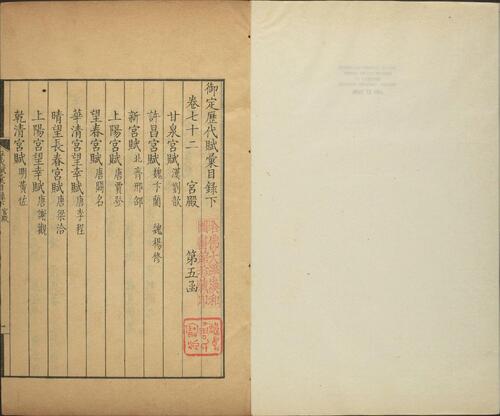 御定歷代賦彙目錄下
卷七十二　宮殿　第五函
甘泉宮賦 漢劉歆
許昌宮賦 魏卞蘭　魏楊修
新宮賦 北齊邢邵
上陽宮賦 唐賈登
望春宮賦 唐闕名
華清宮望幸賦 唐李程
晴望長春宮賦 唐梁洽
上陽宮望幸賦 唐謝觀
乾清宮賦 明黃佐
哈佛大學漢和圖書館珍藏印